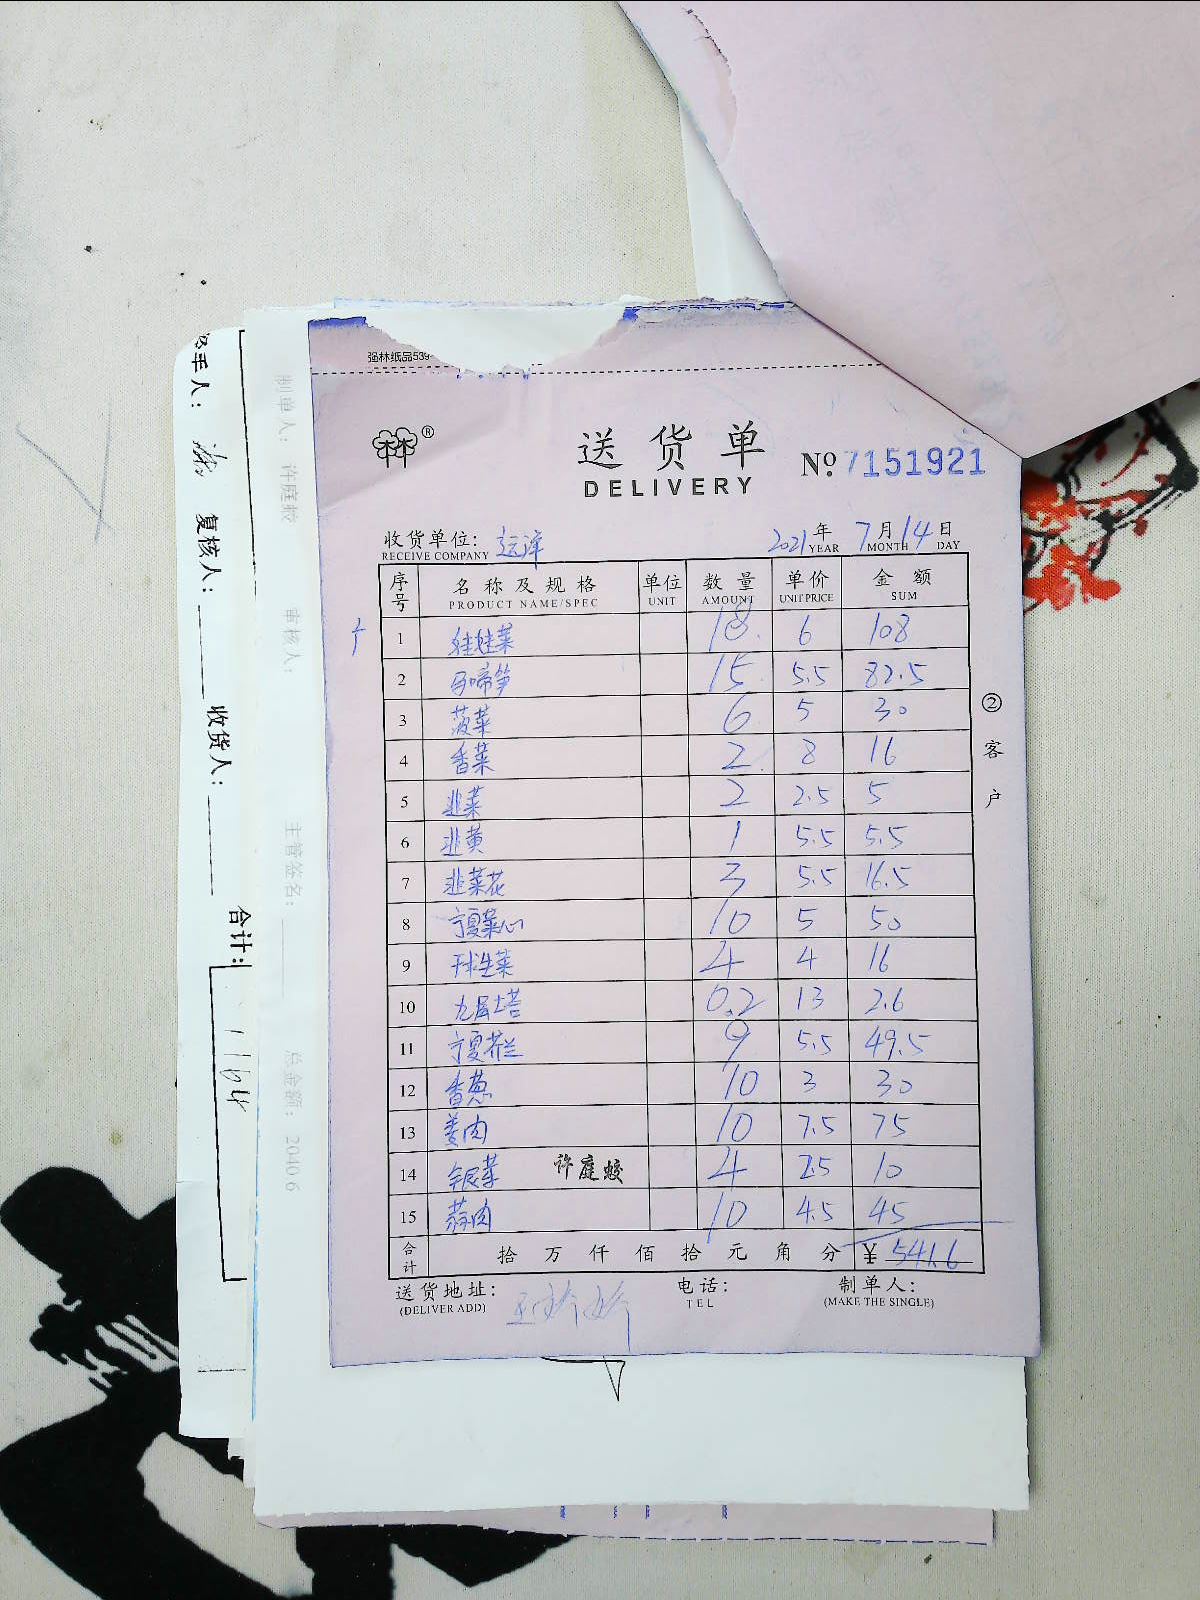 强林纸品539-
®
送货单
DELIVERY
No 7151921
收货单位: 远洋
RECEIVE COMPANY
2021年 7月 14日
YEAR MONTH DAY
序号 名称及规格 单位 数量 单价 金额
PRODUCT NAME/SPEC UNIT AMOUNT UNIT PRICE SUM
1 娃娃菜 18 6 108
2 马啼笋 15 5.5 82.5
3 菠菜 6 5 30
4 香菜 2 8 16
5 韭菜 2 2.5 5
6 韭黄 1 5.5 5.5
7 韭菜花 3 5.5 16.5
8 宁夏菜心 10 5 50
9 球生菜 4 4 16
10 九层塔 0.2 13 2.6
11 宁夏芥兰 9 5.5 49.5
12 香葱 10 3 30
13 姜肉 10 7.5 75
14 银菜 许庭蛟 4 2.5 10
15 蒜肉 10 4.5 45
合计 拾 万 仟 佰 拾 元 角 分 ¥ 541.6
送货地址: 电话: 制单人:
(DELIVER ADD) TEL (MAKE THE SINGLE)
②客户
手人:
复核人:
收货人:
合计:
制单人: 许庭蛟
审核人:
主管签名:
总金额: 2040.6